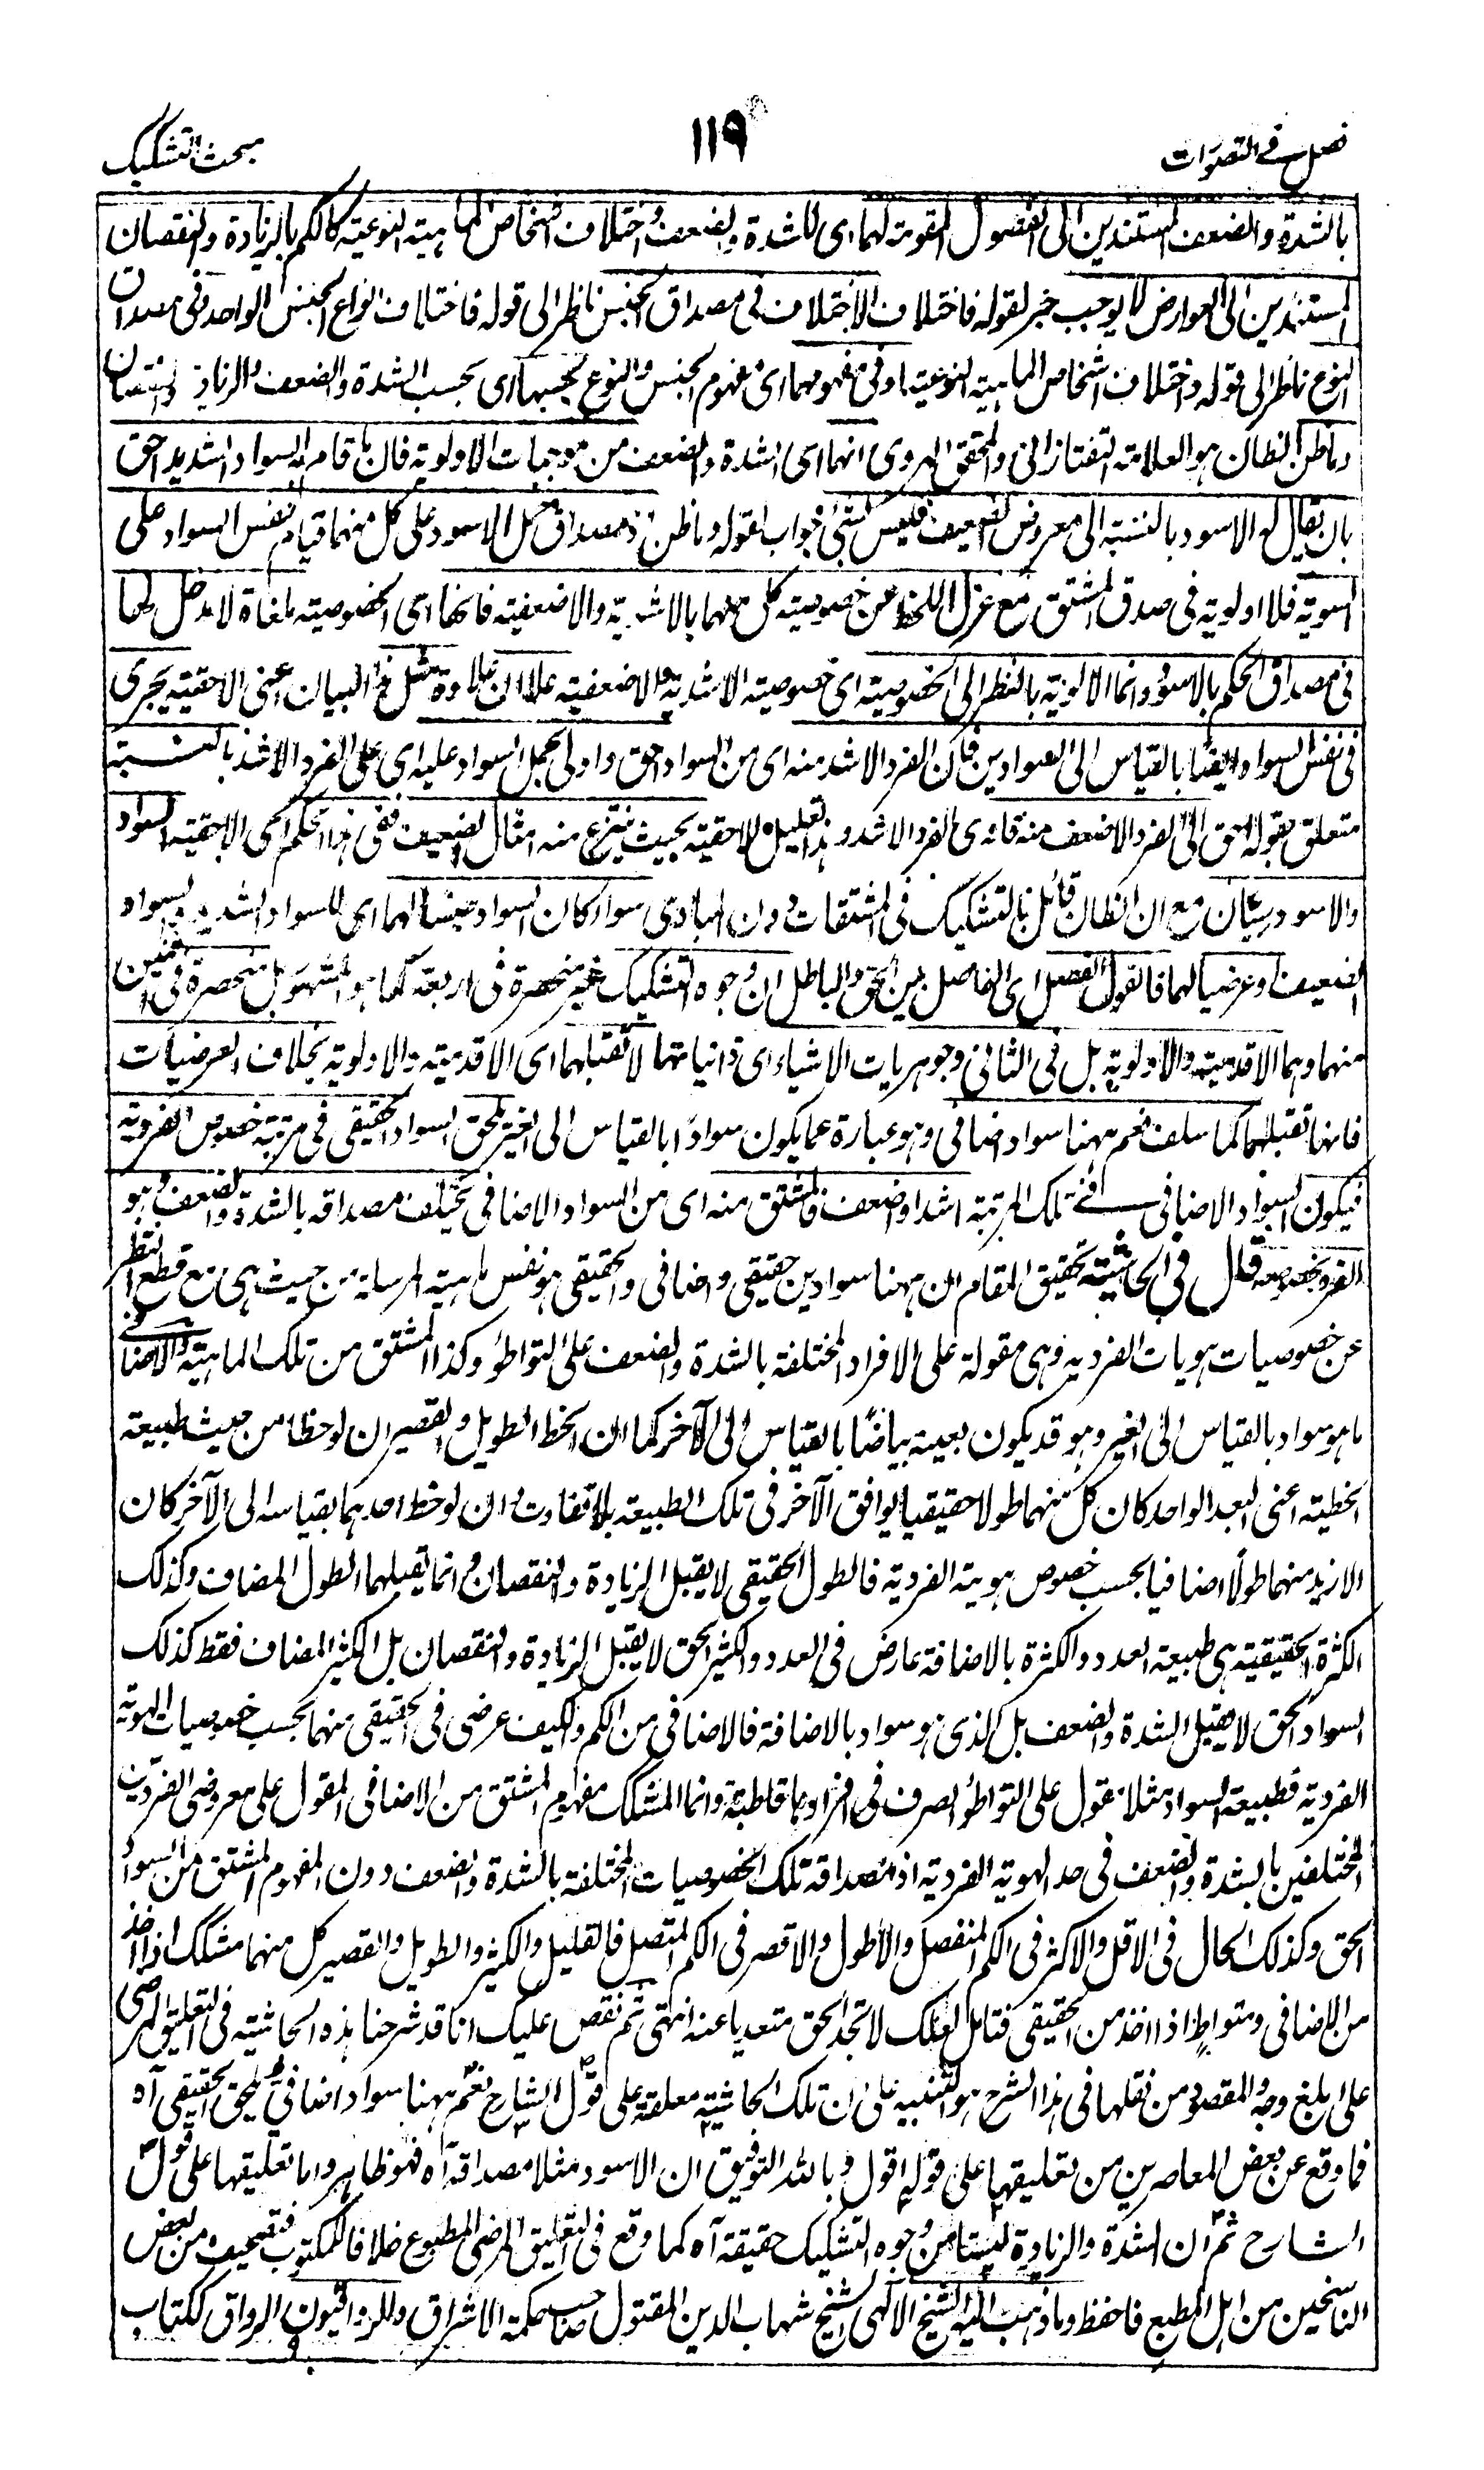 فصل في التصورات
١١٩
مبحث التشكيك
بالشدة والضعف المستندين الى الفصول المقومة لهما اى للشدة والضعف واختلاف اشخاص الماهية النوعية كالكم بالزيادة والنقصان
المستندين الى العوارض لا يوجب خبر لقوله فاختلاف الاختلاف في مصداق الجنس ناظر الى قوله فاختلاف انواع الجنس الواحد وفي مصداق
النوع ناظر الى قوله واختلاف اشخاص الماهية النوعية او في مفهومهما اى مفهوم الجنس والنوع بحسبهما اى بحسب الشدة والضعف والزيادة والنقصان
وما ظن الظان هو العلامة التفتازاني والمحقق الهروي انهما اى الشدة والضعف من موجبات الاولوية فان ما قام به السواد الشديد احق
بان يقال له الاسود بالنسبة الى معروض الضعيف فليس بشئ جواب لقوله وما ظن اذ مصداق حمل الاسود على كل منهما قيام نفس السواد على
السوية فلا اولوية في صدق المشتق مع عزل اللحظ عن خصوصية كل منهما بالاشدية والاضعفية فانها اى الخصوصية ملغاة لا مدخل لها
في مصداق الحكم بالاسود وانما الاولوية بالنظر الى الخصوصية اى خصوصية الاشدية والاضعفية علا ان علاوة مثل هذا البيان اعنى الاحقية يجرى
في نفس السواد ايضا بالقياس الى السوادين فكان الفرد الاشد منه اى من السواد احق واولى بحمل السواد عليه اى على الفرد الاشد بالنسبة
متعلق بقوله احق الى الفرد الاضعف منه فانه اى الفرد الاشد وهذا تعليل للاحقية بحيث ينتزع منه امثال الضعيف ففى هذا الحكم اى الاحقية السواد
والاسود سيان مع ان الظان قائل بالتشكيك في المشتقات دون المبادى سواء كان السواد جنسا لهما اى للسواد الشديد والسواد
الضعيف او عرضيا لهما فالقول الفصل اى الفاصل بين الحق والباطل ان وجوه التشكيك غير منحصرة في اربعة كما هو المشهور بل منحصرة في اثنين
منهما وهما الاقدمية والاولوية بل في الثاني وجوهريات الاشياء اى ذاتياتها لا تقبلهما اى الاقدمية والاولوية بخلاف العرضيات
فانها تقبلهما كما سلف نعم ههنا سواد اضافي وهو عبارة عما يكون سوادا بالقياس الى الغير يلحق السواد الحقيقي في مرتبة خصوص الفردية
فيكون السواد الاضافي في تلك المرتبة اشد او اضعف فالمشتق منه اى من السواد الاضافي يختلف مصداقه بالشدة والضعف وهو
الفرد بخصوصه قال في الحاشية تحقيق المقام ان ههنا سوادين حقيقي واضافي والحقيقي هو نفس ماهية المرسلة من حيث هي مع قطع النظر
عن خصوصيات هويات الفردية وهي مقولة على الافراد المختلفة بالشدة والضعف على التواطؤ وكذا المشتق من تلك الماهية والاضافي
ما هو سواد بالقياس الى الغير وهو قد يكون بعينه بياضا بالقياس الى الآخر كما ان الخط الطويل والقصير ان لوحظا من حيث طبيعة
الخطية اعنى البعد الواحد كان كل منهما طولا حقيقيا يوافق الآخر في تلك الطبيعة بلا تفاوت وان لوحظ احدهما بقياسه الى الآخر كان
الازيد منهما طولا اضافيا بحسب خصوص هوية الفردية فالطول الحقيقي لا يقبل الزيادة والنقصان وانما يقبلهما الطول المضاف وكذلك
الكثرة الحقيقية هي طبيعة العدد والكثرة بالاضافة عارض في العدد والكثير الحق لا يقبل الزيادة والنقصان بل الكثير المضاف فقط كذلك
السواد الحق لا يقبل الشدة والضعف بل الذي هو سواد بالاضافة فالاضافي من الكم والكيف عرضى في الحقيقي منهما بحسب خصوصيات الهوية
الفردية فطبيعة السواد مثلا تقول على التواطؤ الصرف في افرادها قاطبة وانما المشكك مفهوم المشتق من الاضافي المقول على معروضى الفردين
المختلفين بالشدة والضعف في حد الهوية الفردية اذ مصداقه تلك الخصوصيات المختلفة بالشدة والضعف دون المفهوم المشتق من السواد
الحق وكذلك الحال في الاقل والاكثر في الكم المنفصل والاطول والاقصر في الكم المتصل فالقليل والكثير والطويل والقصير كل منهما مشكك اذا اخذ
من الاضافي ومتواط اذا اخذ من الحقيقي فتامل لعلك لا تجد الحق متعديا عنه انتهى ثم نقص عليك انا قد شرحنا هذه الحاشية في التعليق المرضى
على ابلغ وجه والمقصود من نقلها في هذا الشرح هو التنبيه على ان تلك الحاشية معلقة على قول الشارح نعم ههنا سواد اضافي يلحق الحقيقي آه
فما وقع عن بعض المعاصرين من تعليقها على قوله اقول وبالله التوفيق ان الاسود مثلا مصداقه آه فهو ظاهر واما تعليقها على قول
الشارح ثم ان الشدة والزيادة ليستا من وجوه التشكيك حقيقة آه كما وقع في التعليق المرضى المطبوع خلافا للمكتوب فتصحيف من بعض
الناسخين من اهل المطبع فاحفظ وما ذهب اليه الشيخ الالهى الشيخ شهاب الدين المقتول صاحب حكمة الاشراق والرواقيون الرواق ككتاب